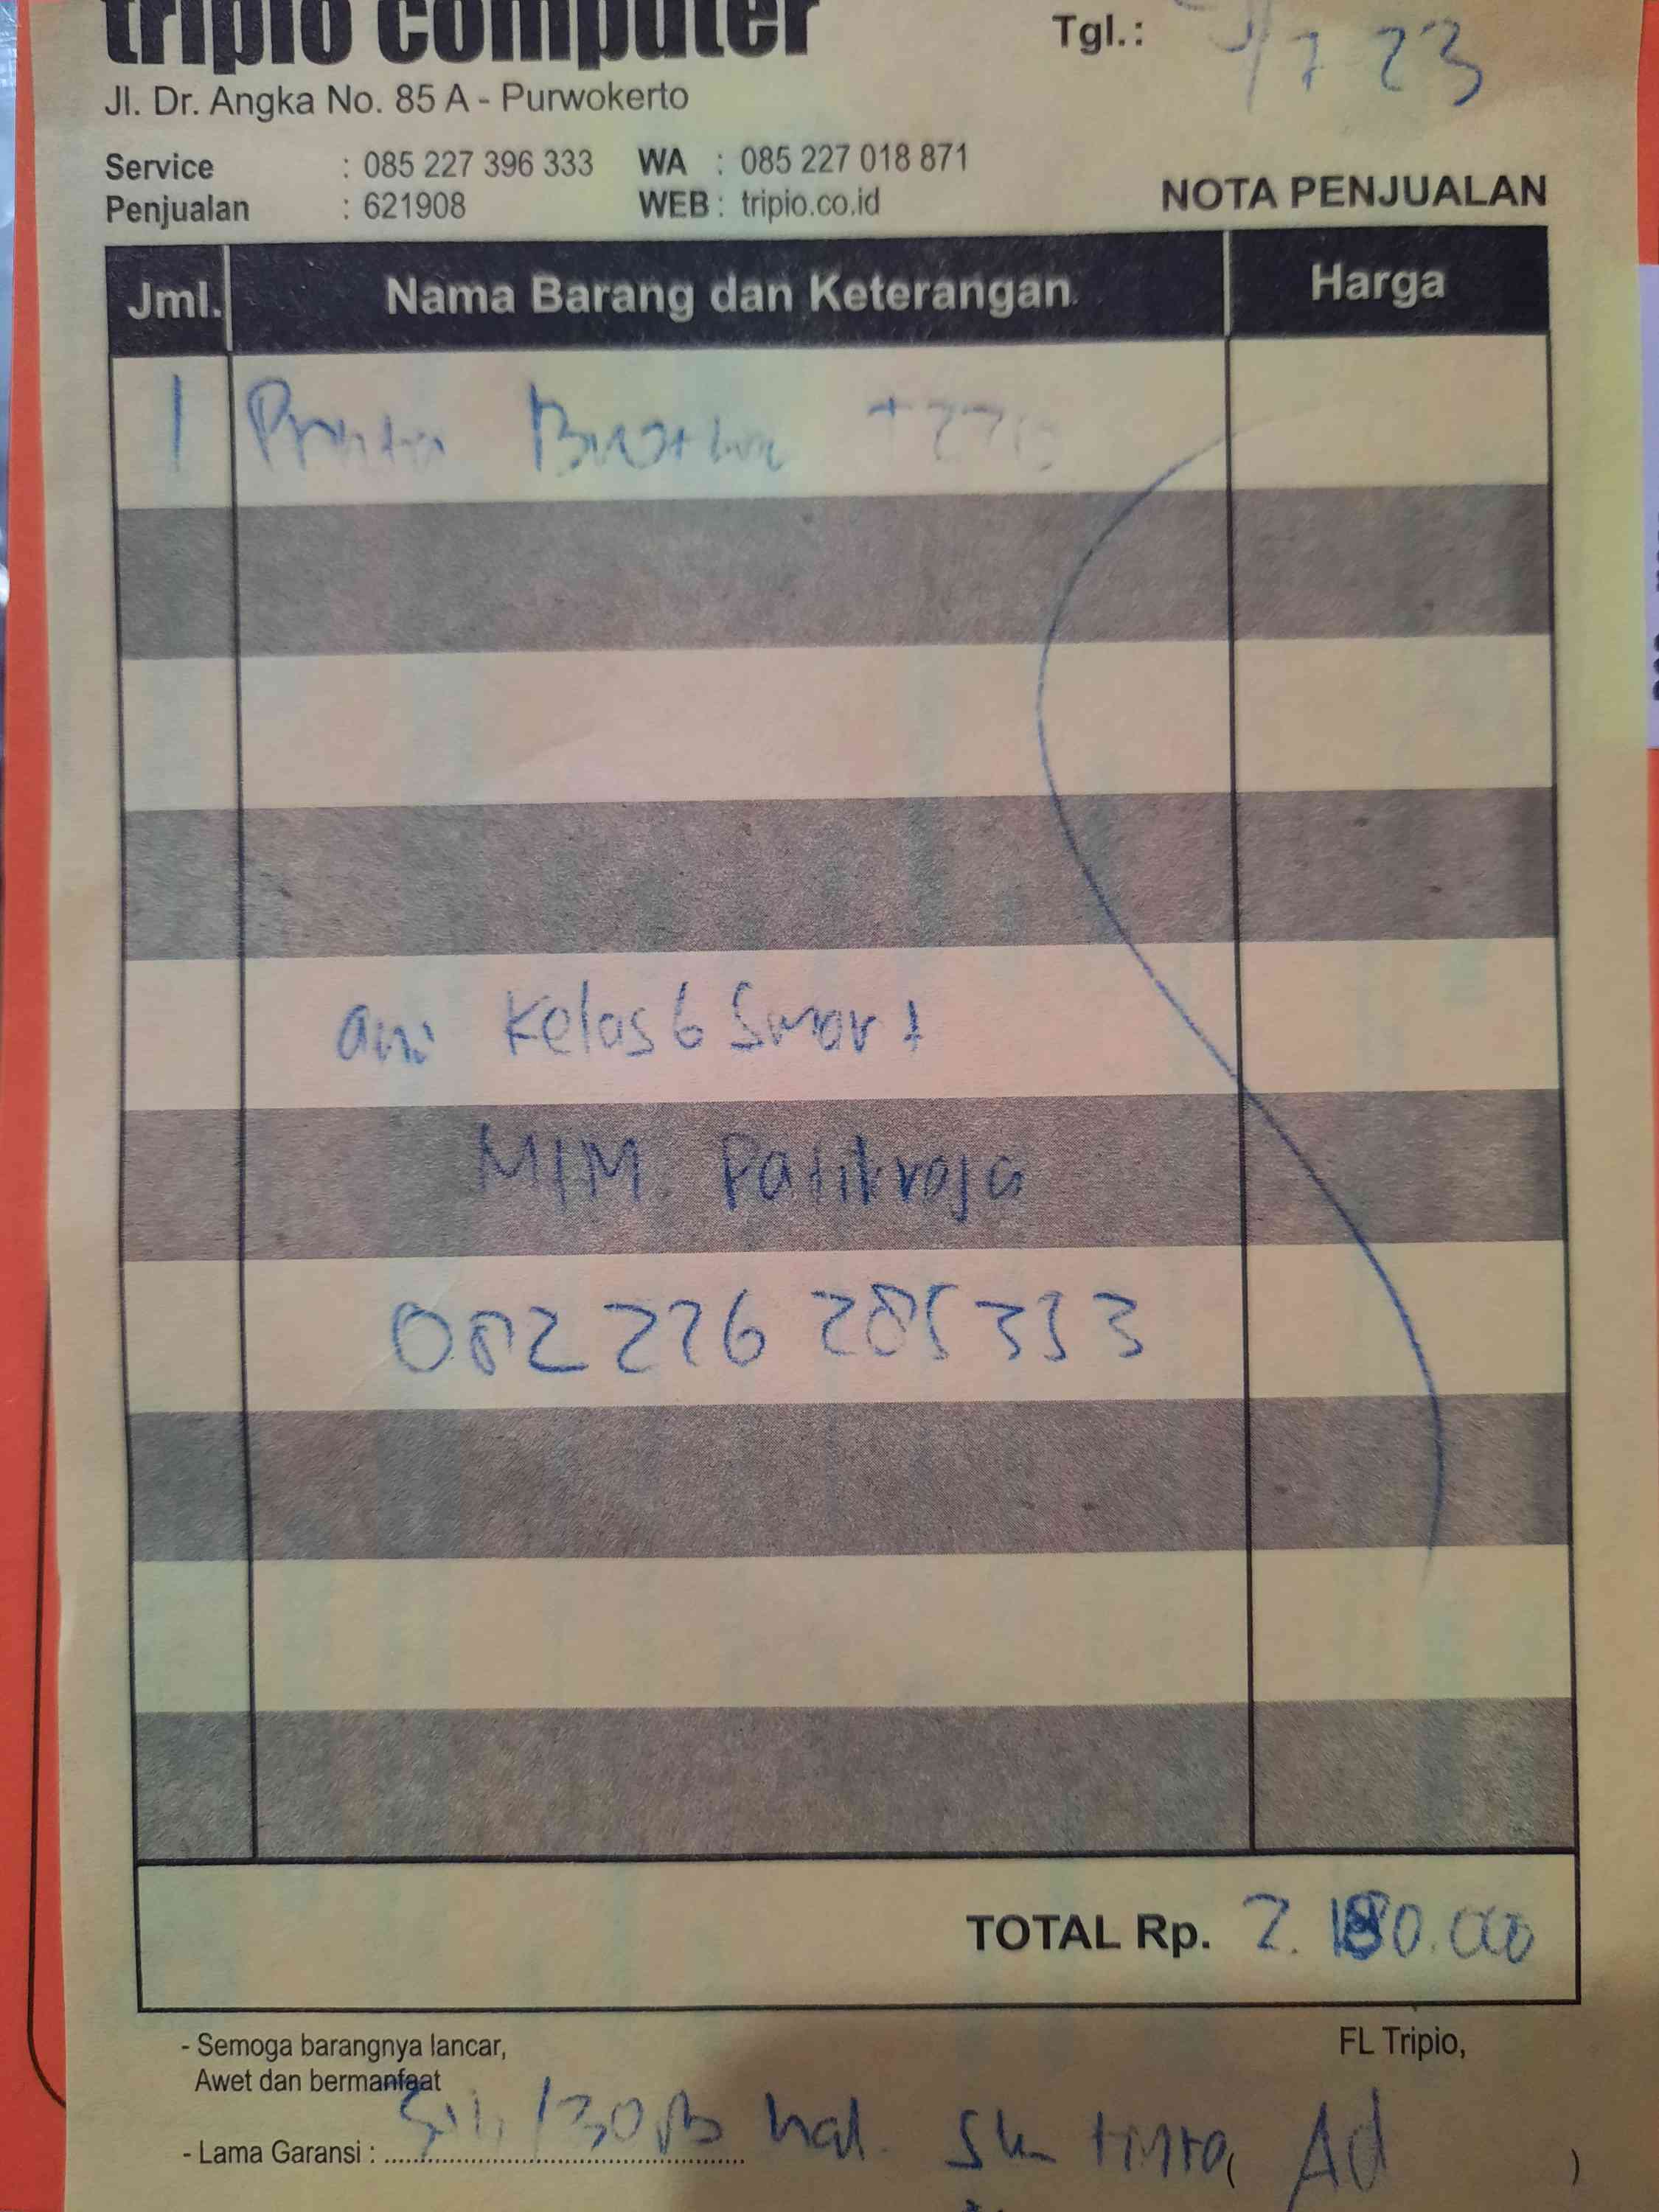 tripio computer
Tgl.: /7 23
Jl. Dr. Angka No. 85 A - Purwokerto
Service : 085 227 396 333 WA : 085 227 018 871
Penjualan : 621908 WEB : tripio.co.id
NOTA PENJUALAN
Jml. Nama Barang dan Keterangan Harga
1 Printer Brother
Kelas 6 Smart
MIM Patikraja
082 226 285 333
TOTAL Rp. 2.180.000
- Semoga barangnya lancar,
Awet dan bermanfaat
FL Tripio,
- Lama Garansi : hal. tinta